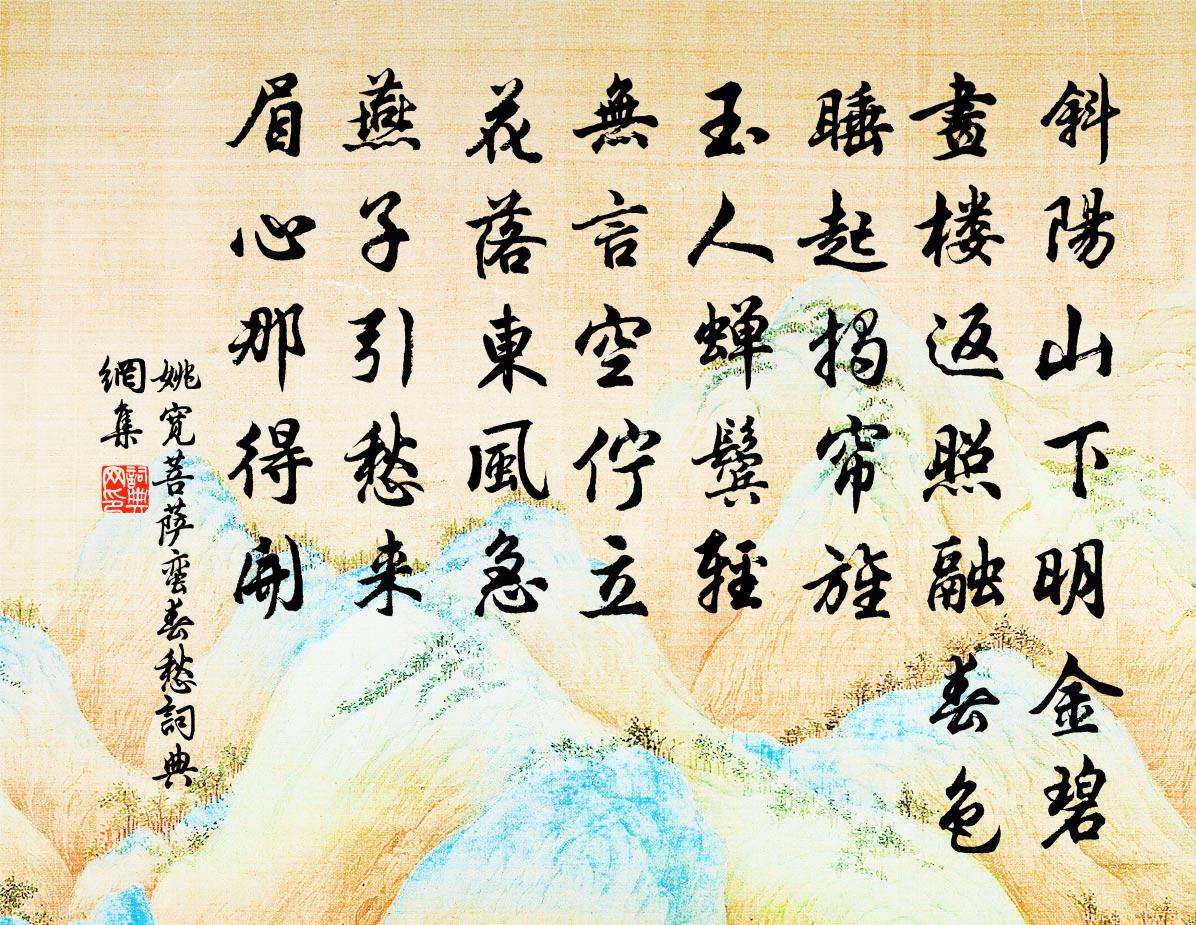 斜陽山下明金碧
畫楼返照融春色
睡起揭帘旌
玉人蝉鬢輕
無言空佇立
花落東風急
燕子引愁来
眉心那得開
姚寬菩萨蛮春愁詞典
網集
詞典
网印